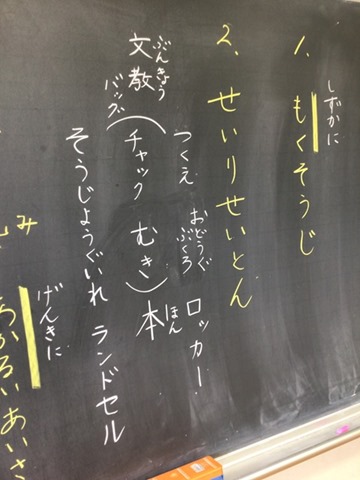 1、もくそうじ
しずかに
2、せいりせいとん
つくえ おどうぐぶくろ ロッカー
文教バッグ(チャック むき) 本
ぶんきょう
ほん
そうじようぐいれ ランドセル
げんきに
あかるいあいさ
み